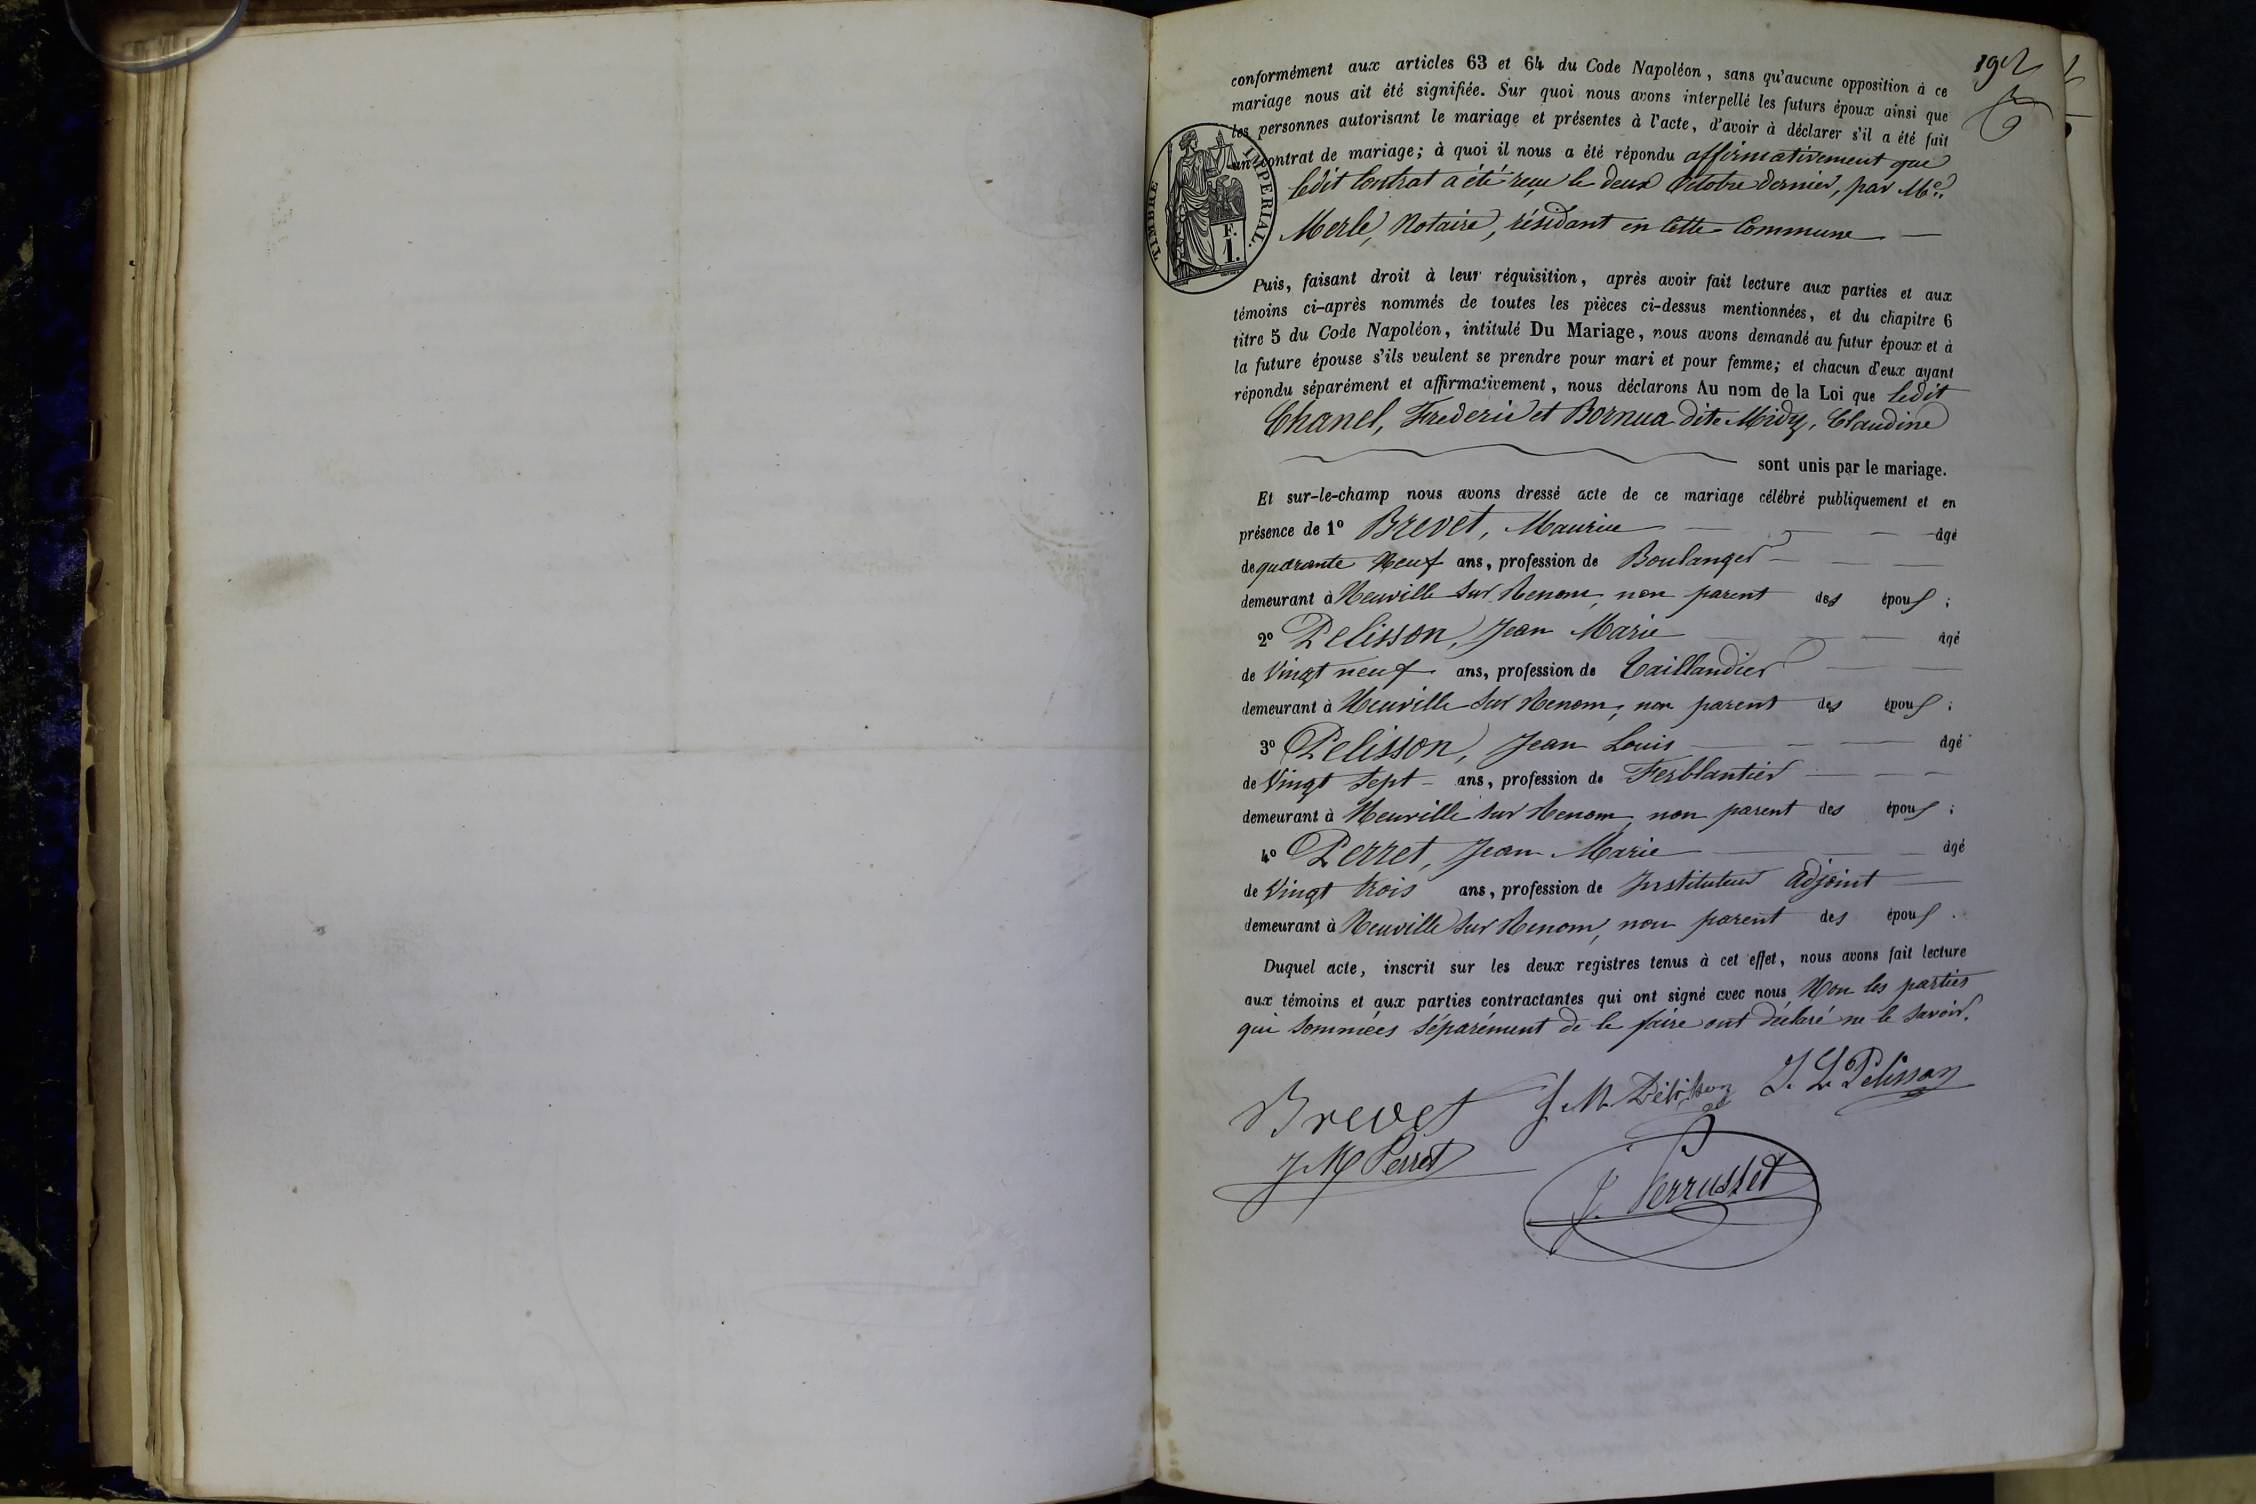 192
conformément aux articles 63 et 64 du Code Napoléon, sans qu'aucune opposition à ce
mariage nous ait été signifiée. Sur quoi nous avons interpellé les futurs époux ainsi que
les personnes autorisant le mariage et présentes à l'acte, d'avoir à déclarer s'il a été fait
un contrat de mariage; à quoi il nous a été répondu affirmativement que
ledit Contrat a été reçu le deux Octobre dernier, par Me
Merle, Notaire, résidant en cette Commune
TIMBRE IMPERIAL.
F.
1.
Puis, faisant droit à leur réquisition, après avoir fait lecture aux parties et aux
témoins ci-après nommés de toutes les pièces ci-dessus mentionnées, et du chapitre 6
titre 5 du Code Napoléon, intitulé Du Mariage, nous avons demandé au futur époux et à
la future épouse s'ils veulent se prendre pour mari et pour femme; et chacun d'eux ayant
répondu séparément et affirmativement, nous déclarons Au nom de la Loi que ledit
Chanel, Frederic et Bornua dite Midy, Claudine
sont unis par le mariage.
Et sur-le-champ nous avons dressé acte de ce mariage célébré publiquement et en
présence de 1º Brevet, Maurice âgé
de quarante Neuf ans, profession de Boulanger
demeurant à Neuville sur Renom, non parent des époux ;
2º Pelisson, Jean Marie âgé
de Vingt neuf ans, profession de Taillandier
demeurant à Neuville sur Renom, non parent des époux ;
3º Pelisson, Jean Louis âgé
de Vingt Sept ans, profession de Ferblantier
demeurant à Neuville sur Renom, non parent des époux ;
4º Perret, Jean Marie âgé
de Vingt trois ans, profession de Instituteur adjoint
demeurant à Neuville sur Renom, non parent des époux .
Duquel acte, inscrit sur les deux registres tenus à cet effet, nous avons fait lecture
aux témoins et aux parties contractantes qui ont signé avec nous Non les parties
qui sommées séparément de le faire ont déclaré ne le savoir.
Brevet J. M. Pelisson J. L. Pelisson
J M Perret
J. Perrusset